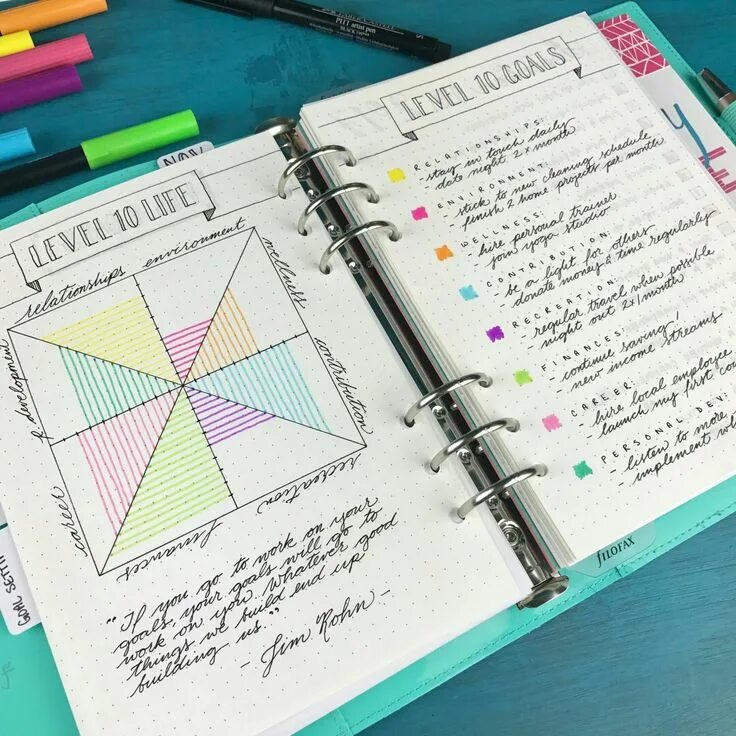 FABER-CASTELL
PITT artist pen
BLACK
S
NOV
LEVEL 10 LIFE
relationships
environment
wellness
contribution
recreation
finances
career
p. development
"If you go to work on your
goals, your goals will go to
work on you. Whatever good
things we build end up
building us."
- Jim Rohn -
GOAL SETTI
LEVEL 10 GOALS
RELATIONSHIPS:
- stay in touch daily
date night 2x month
ENVIRONMENT:
- stick to new cleaning schedule
finish 2 home projects per month
WELLNESS:
- hire personal trainer
join yoga studio
CONTRIBUTION:
- be a light for others
- donate money & time regularly
RECREATION:
- regular travel when possible
- night out 2x/month
FINANCES:
- continue saving!
- new income streams
CAREER:
- hire local employee
- launch my first
PERSONAL DEV:
- listen to more
- implement
filofax